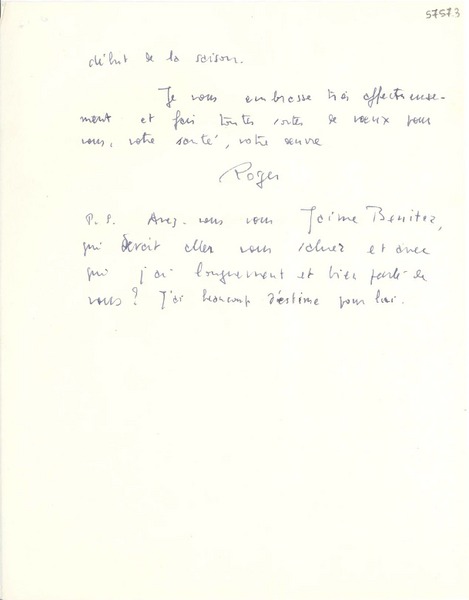 57573
début de la saison.
Je vous embrasse très affectueuse-
ment et fais toutes sortes de vœux pour
vous, votre santé, votre œuvre
Roger
P.S. Avez-vous vu Jaime Benitez,
qui devait aller vous saluer et avec
qui j'ai longuement et bien parlé de
vous ? J'ai beaucoup d'estime pour lui.